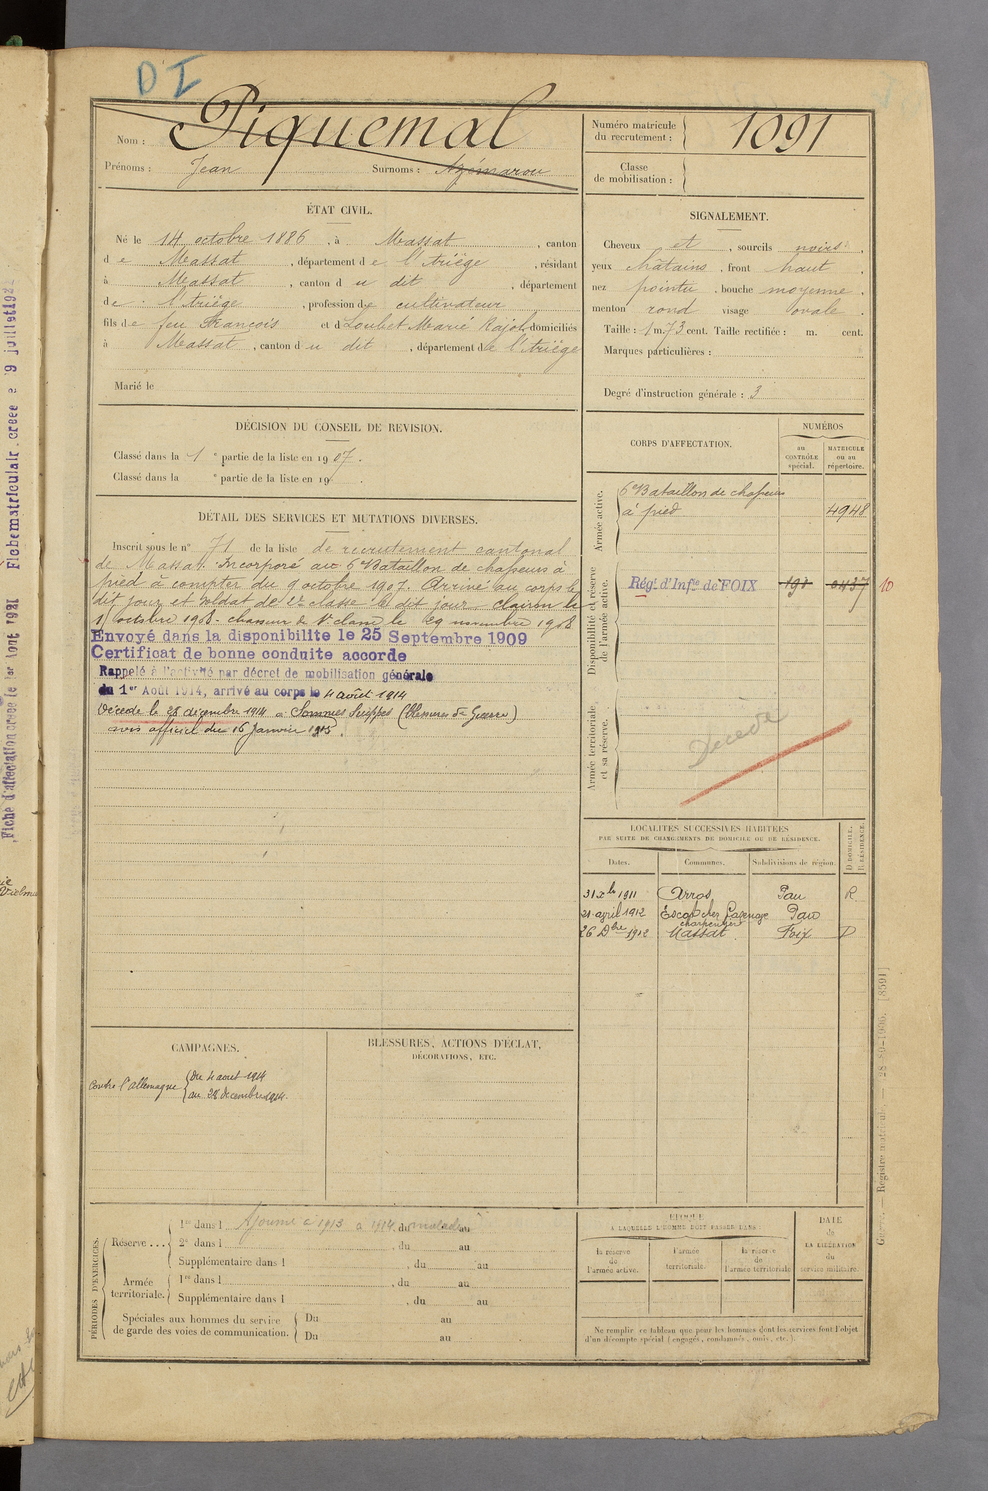 D I
Nom : Piquemal
Prénoms : Jean Surnoms : Azémarou
Numéro matricule du recrutement : 1091
Classe de mobilisation :
ÉTAT CIVIL.
Né le 14 octobre 1886, à Massat, canton
de Massat, département de l'Ariège, résidant
à Massat, canton du dit, département
de l'Ariège, profession de cultivateur
fils de feu François et de Loubet Marie Rajol, domiciliés
à Massat, canton du dit, département de l'Ariège
Marié le
SIGNALEMENT.
Cheveux et, sourcils noirs,
yeux châtains, front haut,
nez pointu, bouche moyenne,
menton rond visage ovale.
Taille : 1 m. 73 cent. Taille rectifiée : m. cent.
Marques particulières :
Degré d'instruction générale : 3
DÉCISION DU CONSEIL DE REVISION.
Classé dans la 1e partie de la liste en 1907.
Classé dans la e partie de la liste en 19 .
DÉTAIL DES SERVICES ET MUTATIONS DIVERSES.
Inscrit sous le n° 71 de la liste de recrutement cantonal
de Massat. Incorporé au 6e Bataillon de chasseurs à
pied à compter du 9 octobre 1907. Arrivé au corps le
dit jour et soldat de 2e classe le dit jour. clairon le
1 octobre 1908. chasseur de 1e classe le 29 novembre 1908
Envoyé dans la disponibilite le 25 Septembre 1909
Certificat de bonne conduite accorde
Rappelé à l'activité par décret de mobilisation générale
du 1er Août 1914, arrivé au corps le 4 août 1914
Décédé le 28 décembre 1914 à Sommes Suippes (Blessures de Guerre)
avis officiel du 16 Janvier 1915.
CORPS D'AFFECTATION.
NUMÉROS
au CONTRÔLE spécial.
MATRICULE ou au répertoire.
Armée active.
6e Bataillon de chasseurs
à pied 4948
Disponibilité et réserve de l'armée active.
Régt d'Infie de FOIX 10
Armée territoriale et sa réserve.
Décédé
LOCALITÉS SUCCESSIVES HABITÉES
PAR SUITE DE CHANGEMENTS DE DOMICILE OU DE RÉSIDENCE.
Dates. Communes. Subdivisions de région. D DOMICILE, R RÉSIDENCE.
31 Xbre 1911 Arros Pau R
21 avril 1912 Escot chez Pau
charpentier
26 Dbre 1912 Massat Foix D
CAMPAGNES.
Contre l'Allemagne du 4 aout 1914
au 28 décembre 1914.
BLESSURES, ACTIONS D'ÉCLAT,
DÉCORATIONS, ETC.
PÉRIODES D'EXERCICES.
Réserve... 1re dans l Ajourné à 1913 à 1914 du malade au
2e dans l , du au
Supplémentaire dans l , du au
Armée territoriale. 1re dans l , du au
Supplémentaire dans l , du au
Spéciales aux hommes du service
de garde des voies de communication.
Du au
Du au
ÉPOQUE
À LAQUELLE L'HOMME DOIT PASSER DANS :
la réserve de l'armée active.
l'armée territoriale.
la réserve de l'armée territoriale
DATE de LA LIBÉRATION du service militaire.
Ne remplir ce tableau que pour les hommes dont les services font l'objet
d'un décompte spécial (engagés, condamnés, omis, etc.).
Registre matricule. — 28-89-1906. [8591]
Fiche matriculaire créée le 9 juillet 192
Fiche d'affectation créée le 1er Aout 1921